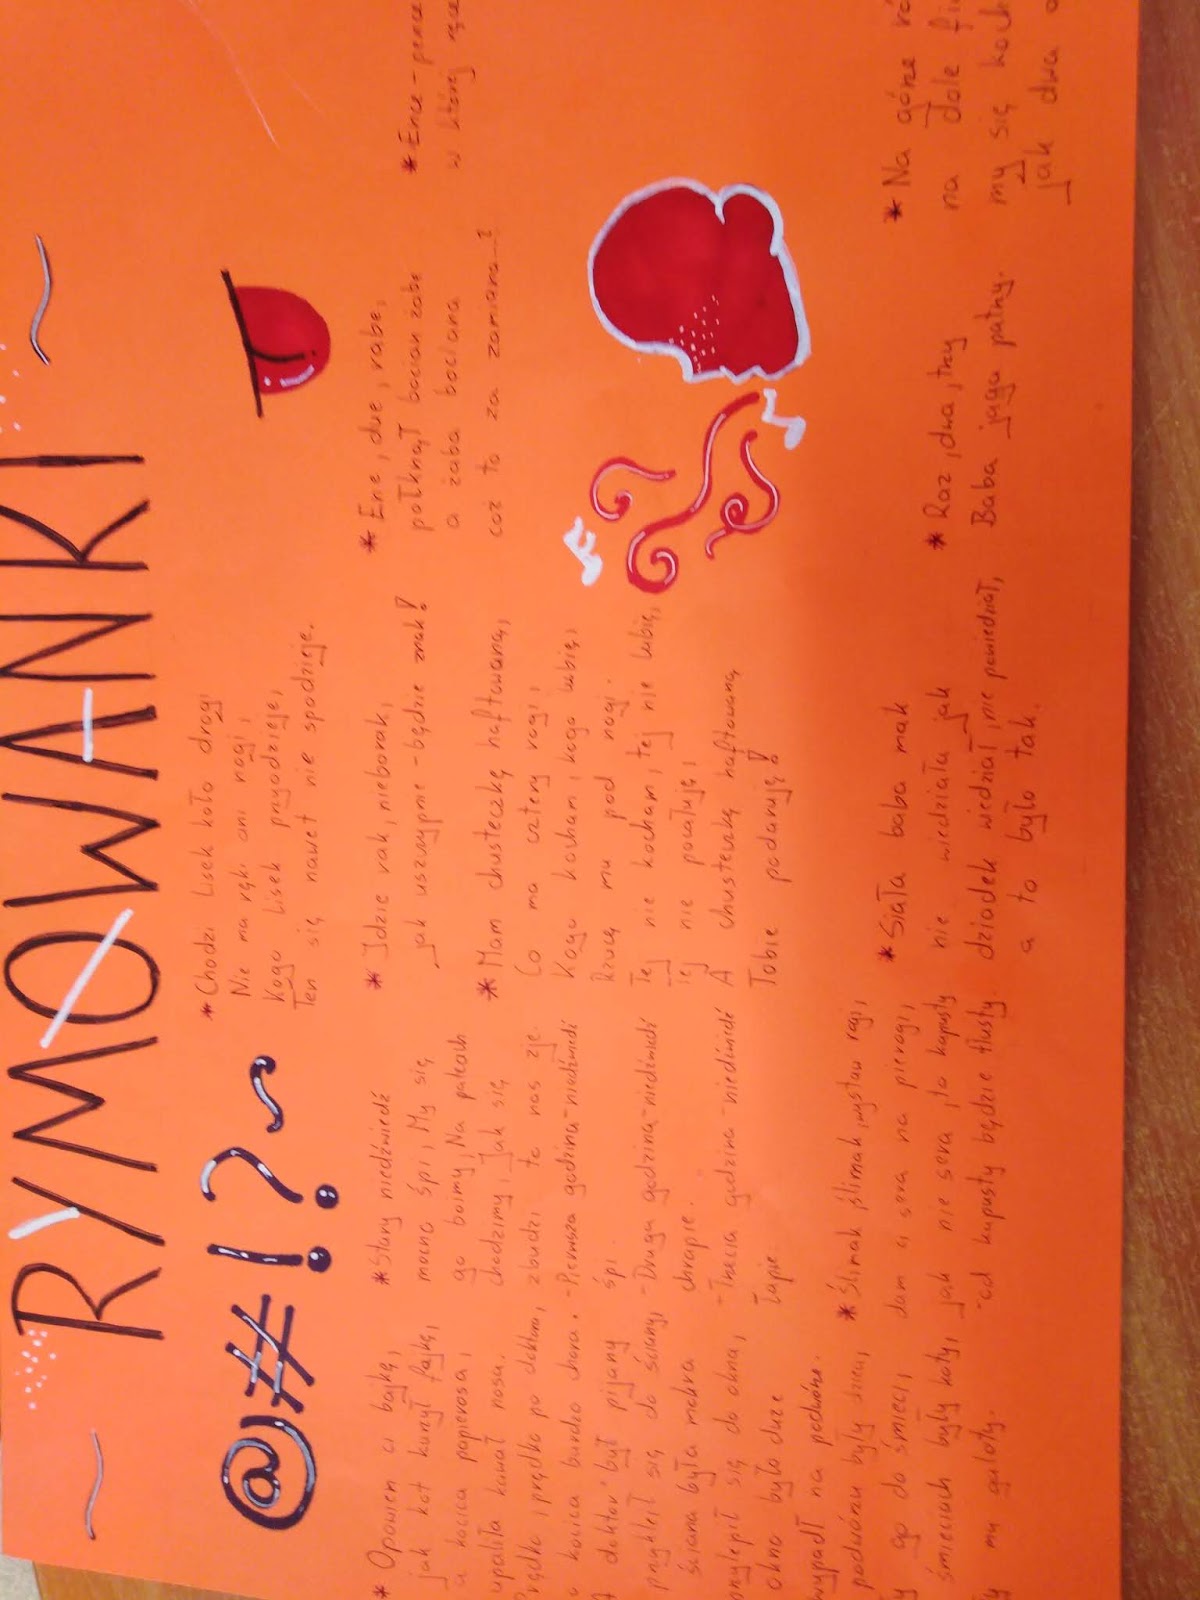 RYMOWANKI
@#!?~
* Opowiem ci bajkę,
jak kot kurzył fajkę,
a kocica papierosa,
upaliła kawał nosa.
Prędko, prędko po doktora,
kocica bardzo chora.
A doktor był pijany
przykleił się do ściany
ściana była mokra
przylepił się do okna,
okno było duże
wypadł na podwórze.
podwórzu były dzieci,
go do śmieci,
śmieciach były koty,
mu galoty.
* Stary niedźwiedź
mocno śpi, My się
go boimy, Na palcach
chodzimy, Jak się
zbudzi to nas zje.
- Pierwsza godzina-niedźwiedź
śpi.
- Druga godzina-niedźwiedź
chrapie.
- Trzecia godzina-niedźwiedź
łapie.
* Ślimak, ślimak, wystaw rogi,
dam ci sera na pierogi,
jak nie sera, to kapusty
-od kapusty będzie tłusty.
* Chodzi lisek koło drogi
Nie ma ręki ani nogi,
Kogo lisek przyodzieje,
Ten się nawet nie spodzieje.
* Idzie rak, nieborak,
jak uszczypnie - będzie znak!
* Mam chusteczkę haftowaną,
Co ma cztery rogi,
Kogo kocham, kogo lubię,
Rzucę mu pod nogi.
Tej nie kocham, tej nie lubię,
Tej nie pocałuję,
A chusteczkę haftowaną
Tobie podaruję!
* Siała baba mak
nie wiedziała jak
dziadek wiedział, nie powiedział,
a to było tak.
* Ene, due, rabe,
połknął bocian żabę
a żaba bociana
coż to za zamiana..?
* Raz, dwa, trzy
Baba jaga patrzy.
* Ence-pence
w której
* Na górze
na dole
my się
jak dwa